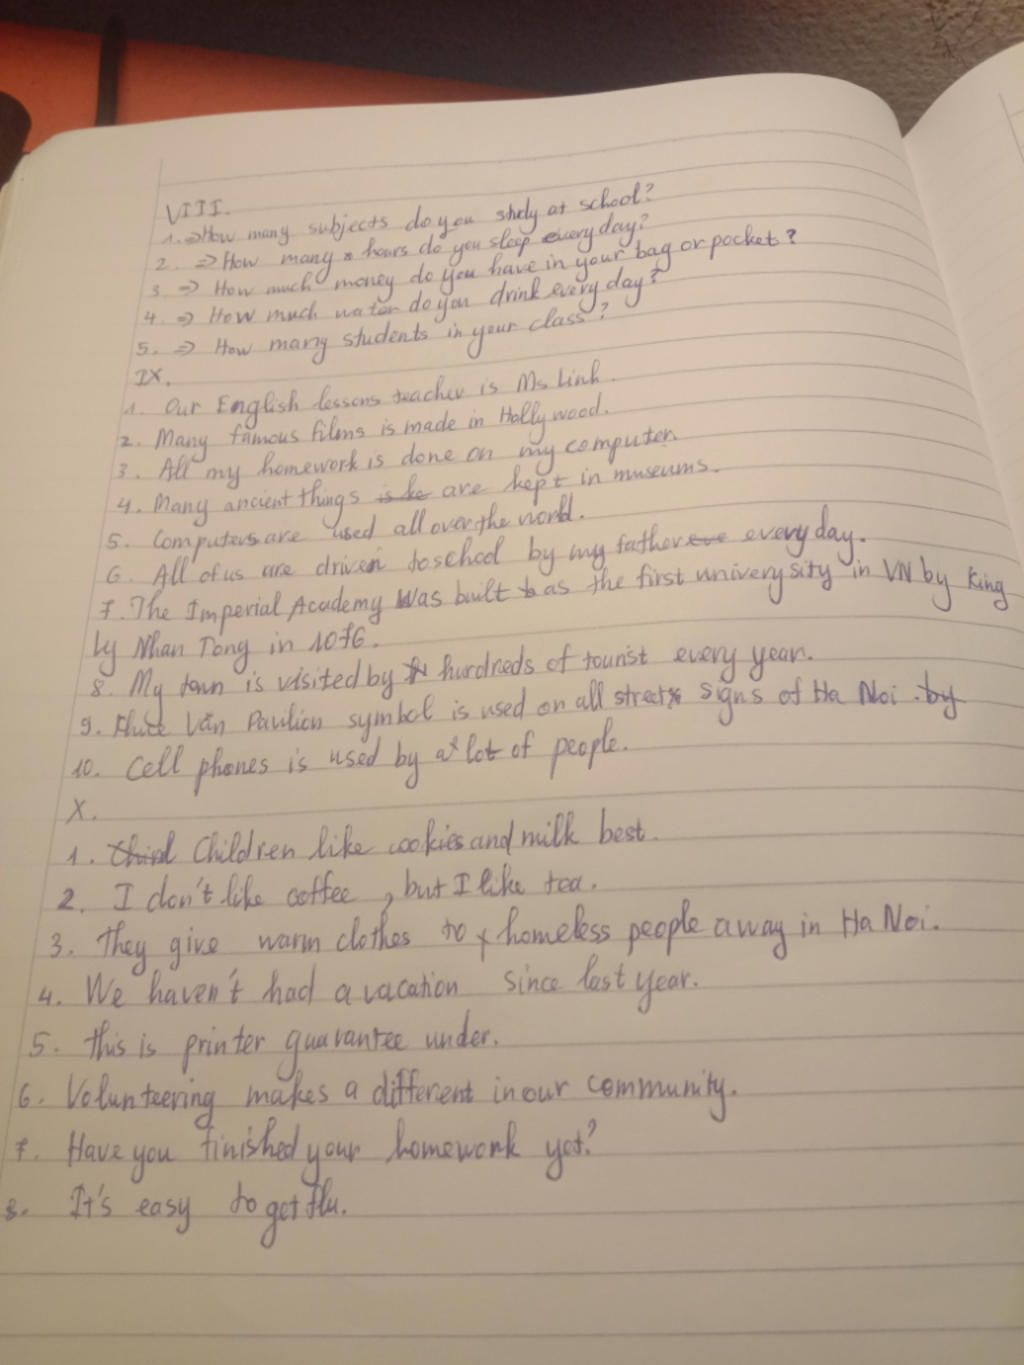 VIII.
1. ⇒ How many subjects do you study at school?
2. ⇒ How many hours do you sleep every day?
3. ⇒ How much money do you have in your bag or pocket?
4. ⇒ How much water do you drink every day?
5. ⇒ How many students in your class?
IX.
1. Our English lessons teacher is Ms Linh.
2. Many famous films is made in Hollywood.
3. All my homework is done on my computer.
4. Many ancient things are kept in museums.
5. Computers are used all over the world.
6. All of us are driven to school by my father every day.
7. The Imperial Academy Was built as the first universysity in VN by King
Ly Nhan Tong in 1076.
8. My town is visited by hurdreds of tourist every year.
9. Văn Pavilion symbol is used on all street signs of Ha Noi.
10. Cell phones is used by a lot of people.
X.
1. Children like cookies and milk best.
2. I don't like coffee, but I like tea.
3. They give warm clothes to homeless people away in Ha Noi.
4. We haven't had a vacation since last year.
5. this is printer guarantee under.
6. Volunteering makes a different in our community.
7. Have you finished your homework yet?
8. It's easy to get flu.